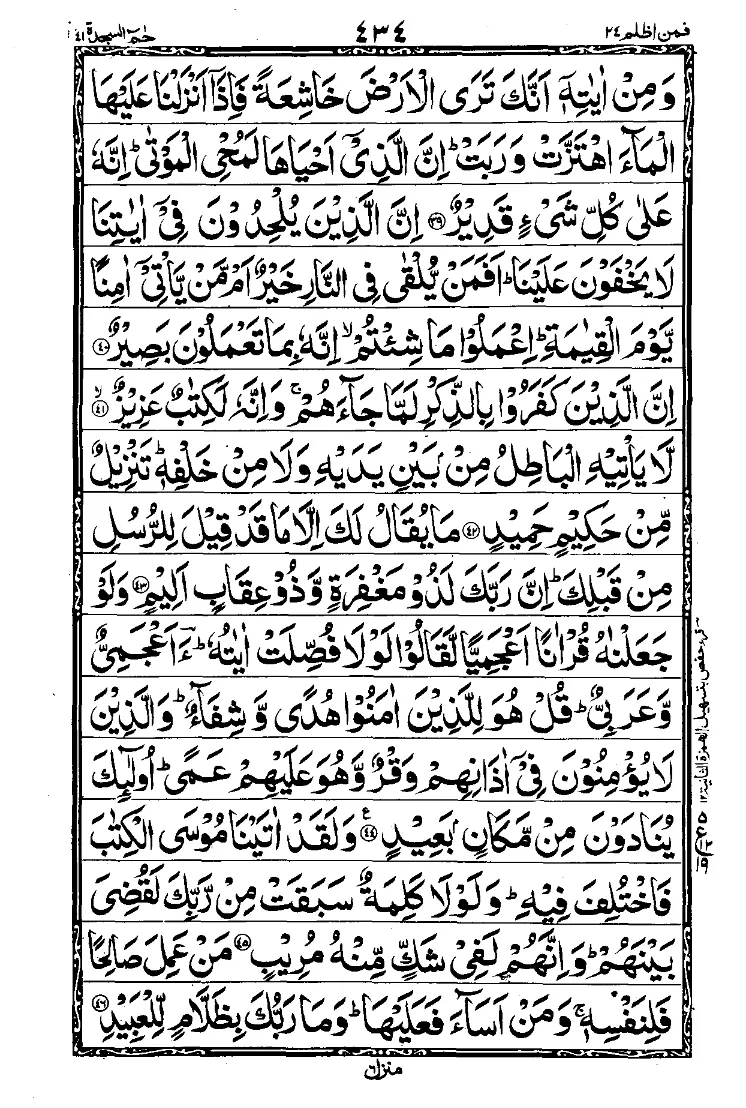 فمن اظلم ٢٤ ٤٣٤ حٰمٓ السجدة ٤١
وَمِنْ اٰيٰتِهٖٓ اَنَّكَ تَرَى الْاَرْضَ خَاشِعَةً فَاِذَآ اَنْزَلْنَا عَلَيْهَا
الْمَآءَ اهْتَزَّتْ وَرَبَتْ ؕ اِنَّ الَّذِيْٓ اَحْيَاهَا لَمُحْيِ الْمَوْتٰى ؕ اِنَّهٗ
عَلٰى كُلِّ شَيْءٍ قَدِيْرٌ ﴿٣٩﴾ اِنَّ الَّذِيْنَ يُلْحِدُوْنَ فِيْٓ اٰيٰتِنَا
لَا يَخْفَوْنَ عَلَيْنَا ؕ اَفَمَنْ يُّلْقٰى فِي النَّارِ خَيْرٌ اَمْ مَّنْ يَّاْتِيْٓ اٰمِنًا
يَّوْمَ الْقِيٰمَةِ ؕ اِعْمَلُوْا مَا شِئْتُمْ ۙ اِنَّهٗ بِمَا تَعْمَلُوْنَ بَصِيْرٌ ﴿٤٠﴾
اِنَّ الَّذِيْنَ كَفَرُوْا بِالذِّكْرِ لَمَّا جَآءَهُمْ ۚ وَاِنَّهٗ لَكِتٰبٌ عَزِيْزٌ ۙ﴿٤١﴾
لَّا يَاْتِيْهِ الْبَاطِلُ مِنْۢ بَيْنِ يَدَيْهِ وَلَا مِنْ خَلْفِهٖ ؕ تَنْزِيْلٌ
مِّنْ حَكِيْمٍ حَمِيْدٍ ﴿٤٢﴾ مَا يُقَالُ لَكَ اِلَّا مَا قَدْ قِيْلَ لِلرُّسُلِ
مِنْ قَبْلِكَ ؕ اِنَّ رَبَّكَ لَذُوْ مَغْفِرَةٍ وَّذُوْ عِقَابٍ اَلِيْمٍ ﴿٤٣﴾ وَلَوْ
جَعَلْنٰهُ قُرْاٰنًا اَعْجَمِيًّا لَّقَالُوْا لَوْلَا فُصِّلَتْ اٰيٰتُهٗ ؕ ءَؔاَعْجَمِيٌّ
وَّعَرَبِيٌّ ؕ قُلْ هُوَ لِلَّذِيْنَ اٰمَنُوْا هُدًى وَّشِفَآءٌ ؕ وَالَّذِيْنَ
لَا يُؤْمِنُوْنَ فِيْٓ اٰذَانِهِمْ وَقْرٌ وَّهُوَ عَلَيْهِمْ عَمًى ؕ اُولٰٓئِكَ
يُنَادَوْنَ مِنْ مَّكَانٍۭ بَعِيْدٍ ﴿٤٤﴾ ع وَلَقَدْ اٰتَيْنَا مُوْسَى الْكِتٰبَ
فَاخْتُلِفَ فِيْهِ ؕ وَلَوْلَا كَلِمَةٌ سَبَقَتْ مِنْ رَّبِّكَ لَقُضِيَ
بَيْنَهُمْ ؕ وَاِنَّهُمْ لَفِيْ شَكٍّ مِّنْهُ مُرِيْبٍ ﴿٤٥﴾ مَنْ عَمِلَ صَالِحًا
فَلِنَفْسِهٖ ۚ وَمَنْ اَسَآءَ فَعَلَيْهَا ؕ وَمَا رَبُّكَ بِظَلَّامٍ لِّلْعَبِيْدِ ﴿٤٦﴾
منزل ٦
قرء حفص بتسهيل الهمزة الثانية ١٢